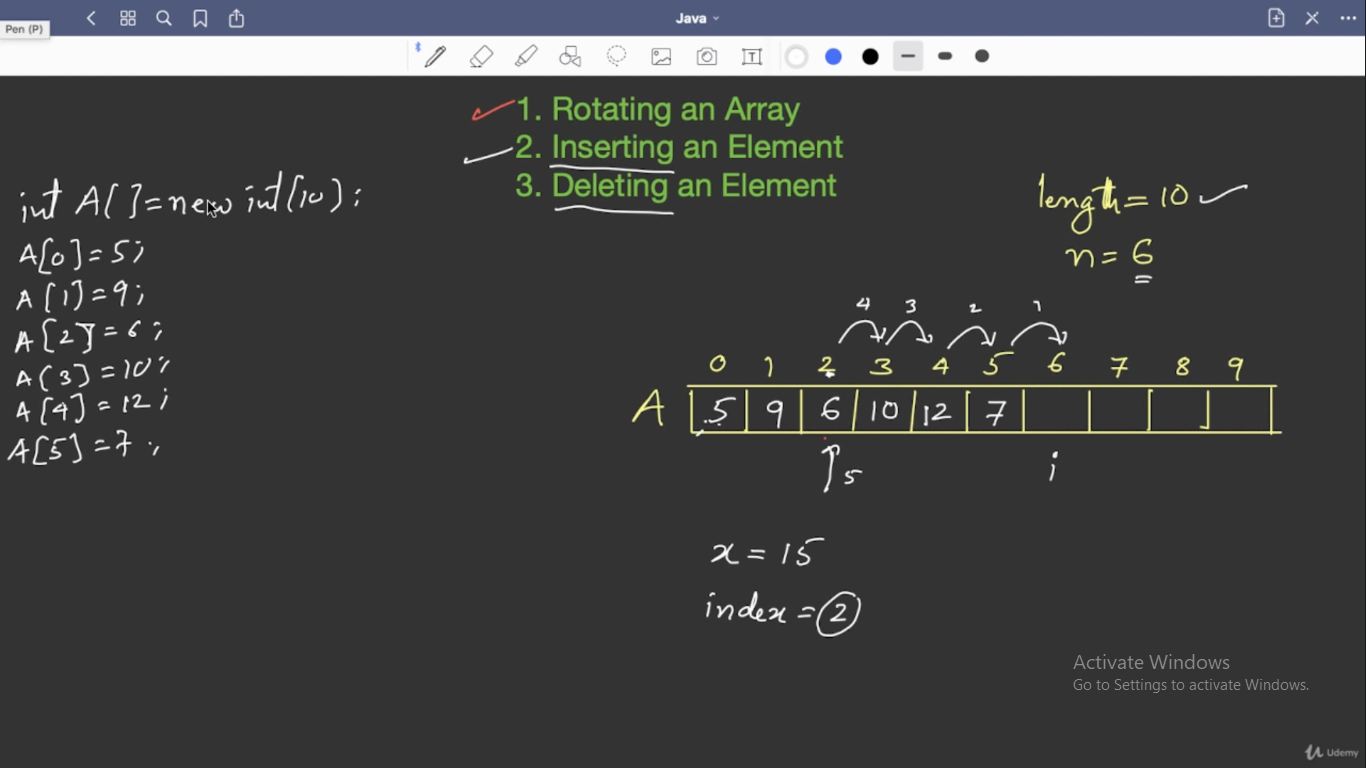 Java
Pen (P)
T
1. Rotating an Array
2. Inserting an Element
3. Deleting an Element
int A[]=new int[10];
A[0]=5;
A[1]=9;
A[2]=6;
A[3]=10;
A[4]=12;
A[5]=7;
length=10
n=6
4 3 2 1
0 1 2 3 4 5 6 7 8 9
A 5 9 6 10 12 7
5 i
x=15
index=2
Activate Windows
Go to Settings to activate Windows.
Udemy